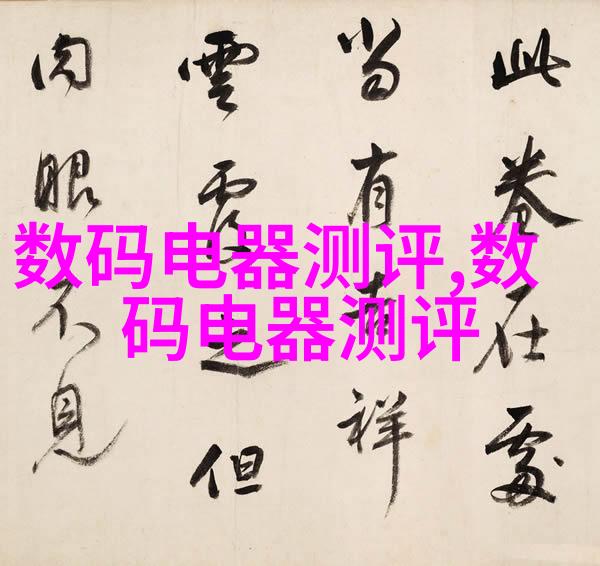 此卷在處
当有吉祥
雲覆之但
肉眼不見
数码电器测评,数
码电器测评